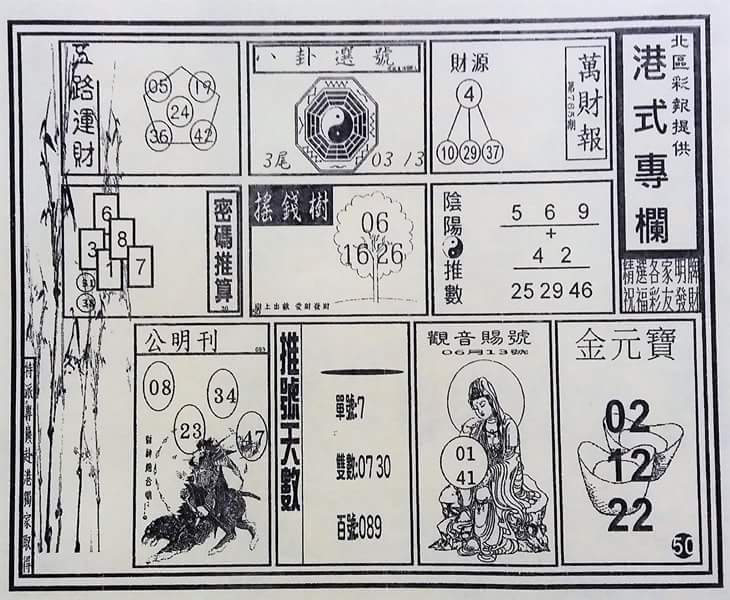 北區彩報提供
港式專欄
精選各家明牌
祝福彩友發財
萬財報
財源
4
10 29 37
八卦選號
3尾
03 13
五路運財
05 19
24
36 42
陰陽推數
5 6 9
+
4 2
25 29 46
搖錢樹
06
16 26
樹上出獻 愛財發財
密碼推算
6
3 8
1 7
31
38
金元寶
02
12
22
50
觀音賜號
06月13號
01
41
推號天數
單號:7
雙數:07 30
百號:089
公明刊
08
34
23
47
特派專員赴港獨家取得